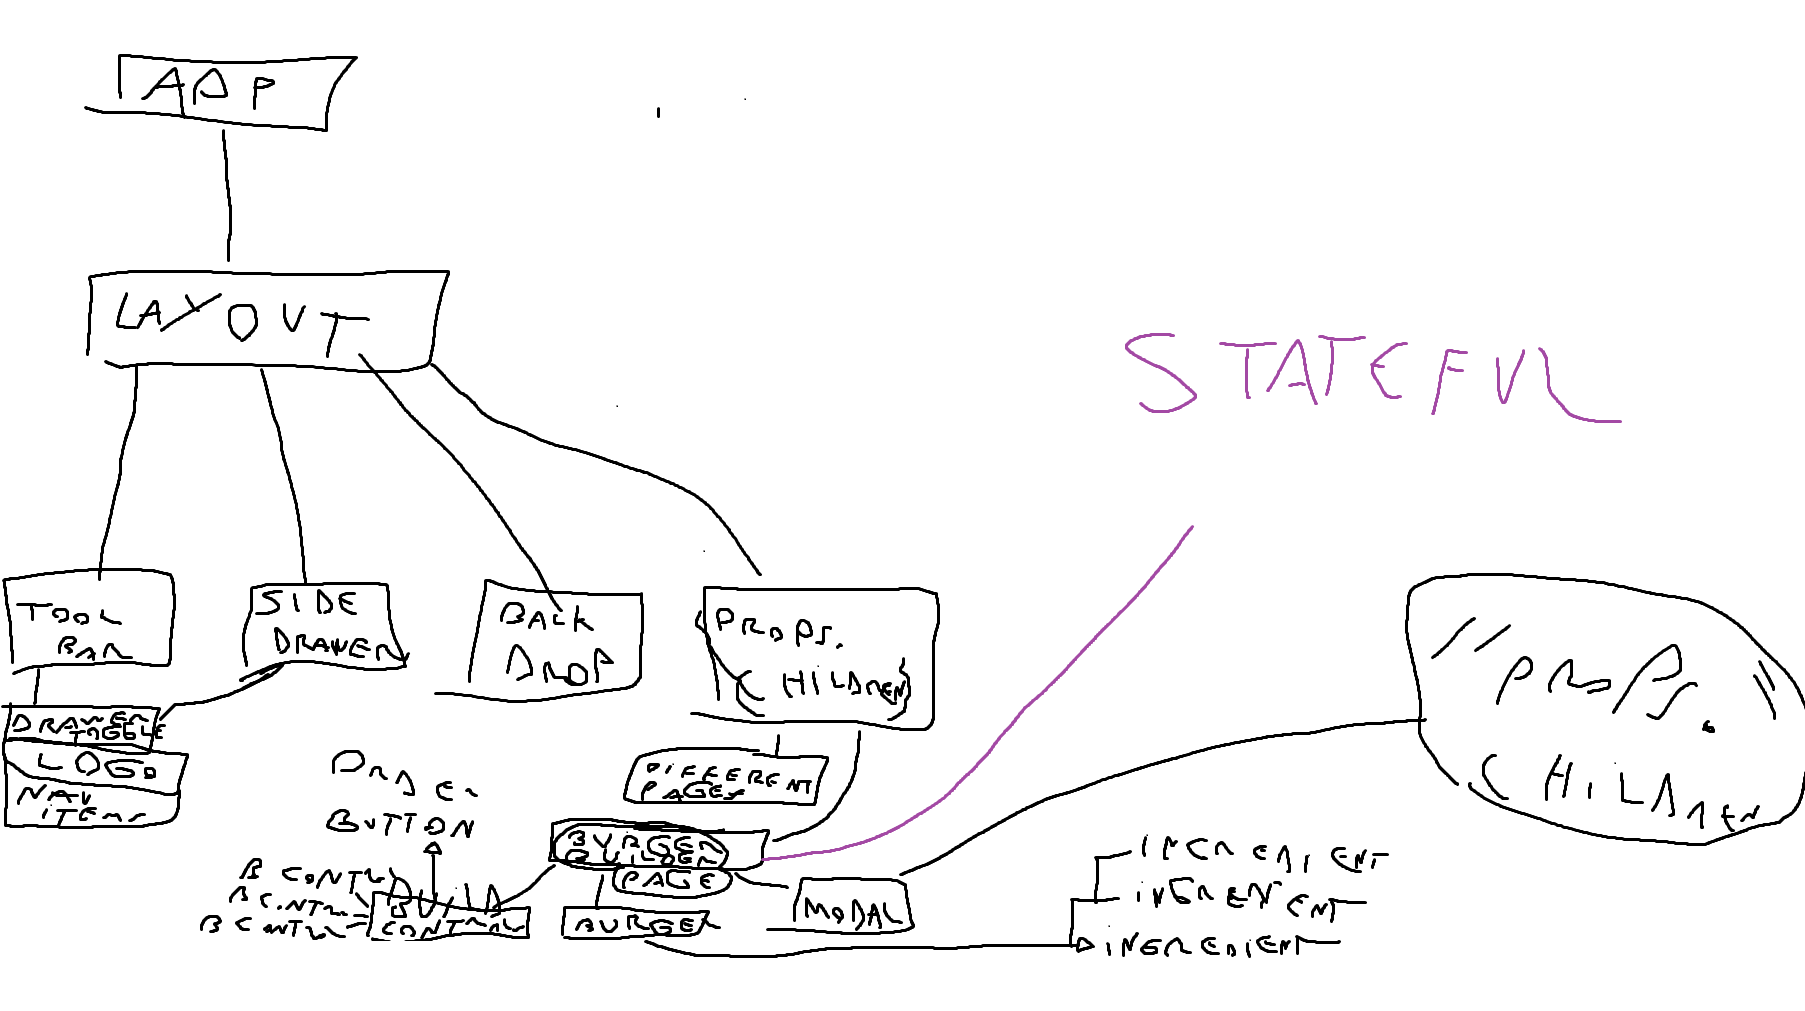 APP
LAYOUT
STATEFUL
TOOL
BAR
SIDE
DRAWER
BACK
DROP
{PROPS.
CHILDREN}
"PROPS.
CHILDREN"
DRAWER
TOGGLE
LOGO
NAV
ITEMS
ORDER
BUTTON
DIFFERENT
PAGES
BURGER
BUILDER
PAGE
B CONTRL
B CONTRL
B CONTRL
BUILD
CONTROL
BURGER
MODAL
INGREDIENT
INGREDIENT
INGREDIENT